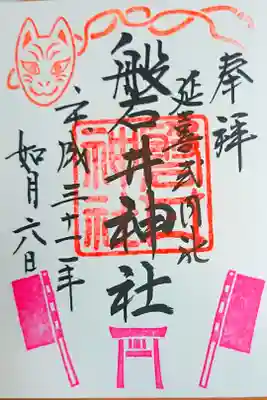 奉拝
延喜式内社
磐井神社
平成三十一年
如月六日
磐井神社